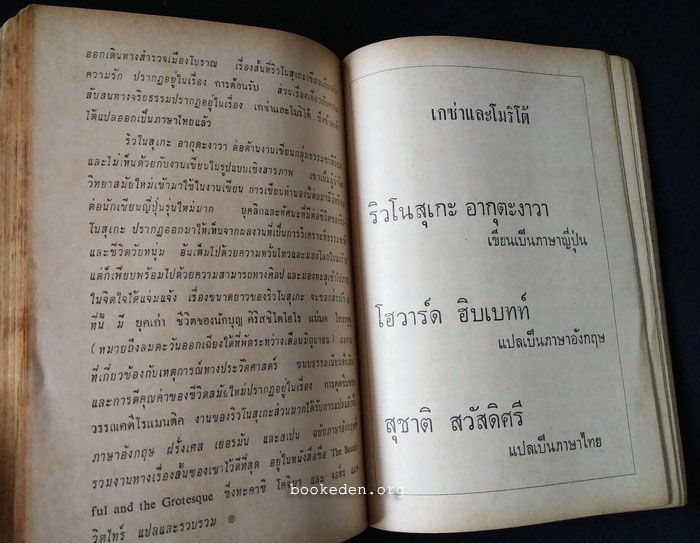 ออกเดินทางสำรวจเมืองโบราณ เรื่องสั้นที่ริวโนสุเกะเขียนเกี่ยวกับ
ความรัก ปรากฏอยู่ในเรื่อง การต้อนรับ ส่วนเรื่องเกี่ยวกับความ
สับสนทางจริยธรรมปรากฏอยู่ในเรื่อง เกซ่าและโมริโต้ ซึ่ง
ได้แปลออกเป็นภาษาไทยแล้ว
ริวโนสุเกะ อากุตะงาวา ต่อต้านงานเขียนกลุ่มธรรมชาตินิยม
และไม่เห็นด้วยกับงานเขียนในรูปแบบเชิงสารภาพ เขาเป็นผู้
วิทยาสมัยใหม่เข้ามาใช้ในงานเขียน การเขียนทำนองนี้ต่อมามี
ต่อนักเขียนญี่ปุ่นรุ่นใหม่มาก บุคลิกและทัศนะที่มีต่อชีวิตของ
โนสุเกะ ปรากฏออกมาให้เห็นจากผลงานที่เป็นการวิเคราะห์ธรรมชาติ
และชีวิตวัยหนุ่ม อันเต็มไปด้วยความหวั่นไหวและมองโลกใน
แต่ก็เพียบพร้อมไปด้วยความสามารถทางศิลปและมองทะลุเข้าไป
ในจิตใจได้แจ่มแจ้ง เรื่องขนาดยาวของริวโนสุเกะ จะขอกล่าวไว้ ณ
ที่นี้ มี ยุคเก่า ชีวิตของนักบุญ คิริสซิโตโฮโร แน่นค
(หมายถึงลมตะวันออกเฉียงใต้ที่พัดระหว่างเดือนมิถุนายน)
ที่เกี่ยวข้องกับเหตุการณ์ทางประวัติศาสตร์ ขนบธรรมเนียมดั้งเดิม
และการตีคุณค่าของชีวิตสมัยใหม่ปรากฏอยู่ในเรื่อง
วรรณคดีโรแมนติค งานของริวโนสุเกะส่วนมากได้รับการแปลแล้ว
ภาษาอังกฤษ ฝรั่งเศส เยอรมัน และสเปน ฉบับภาษาอังกฤษ
รวมงานทางเรื่องสั้นของเขาไว้ดีที่สุด อยู่ในหนังสือชื่อ The Beauti-
ful and the Grotesque ซึ่งทะคาชิ โคจิมา และ จอห์น แมค
วิตไทร์ แปลและรวบรวม
เกซ่าและโมริโต้
ริวโนสุเกะ อากุตะงาวา
เขียนเป็นภาษาญี่ปุ่น
โฮวาร์ด ฮิบเบทท์
แปลเป็นภาษาอังกฤษ
สุชาติ สวัสดิศรี
แปลเป็นภาษาไทย
bookeden.org